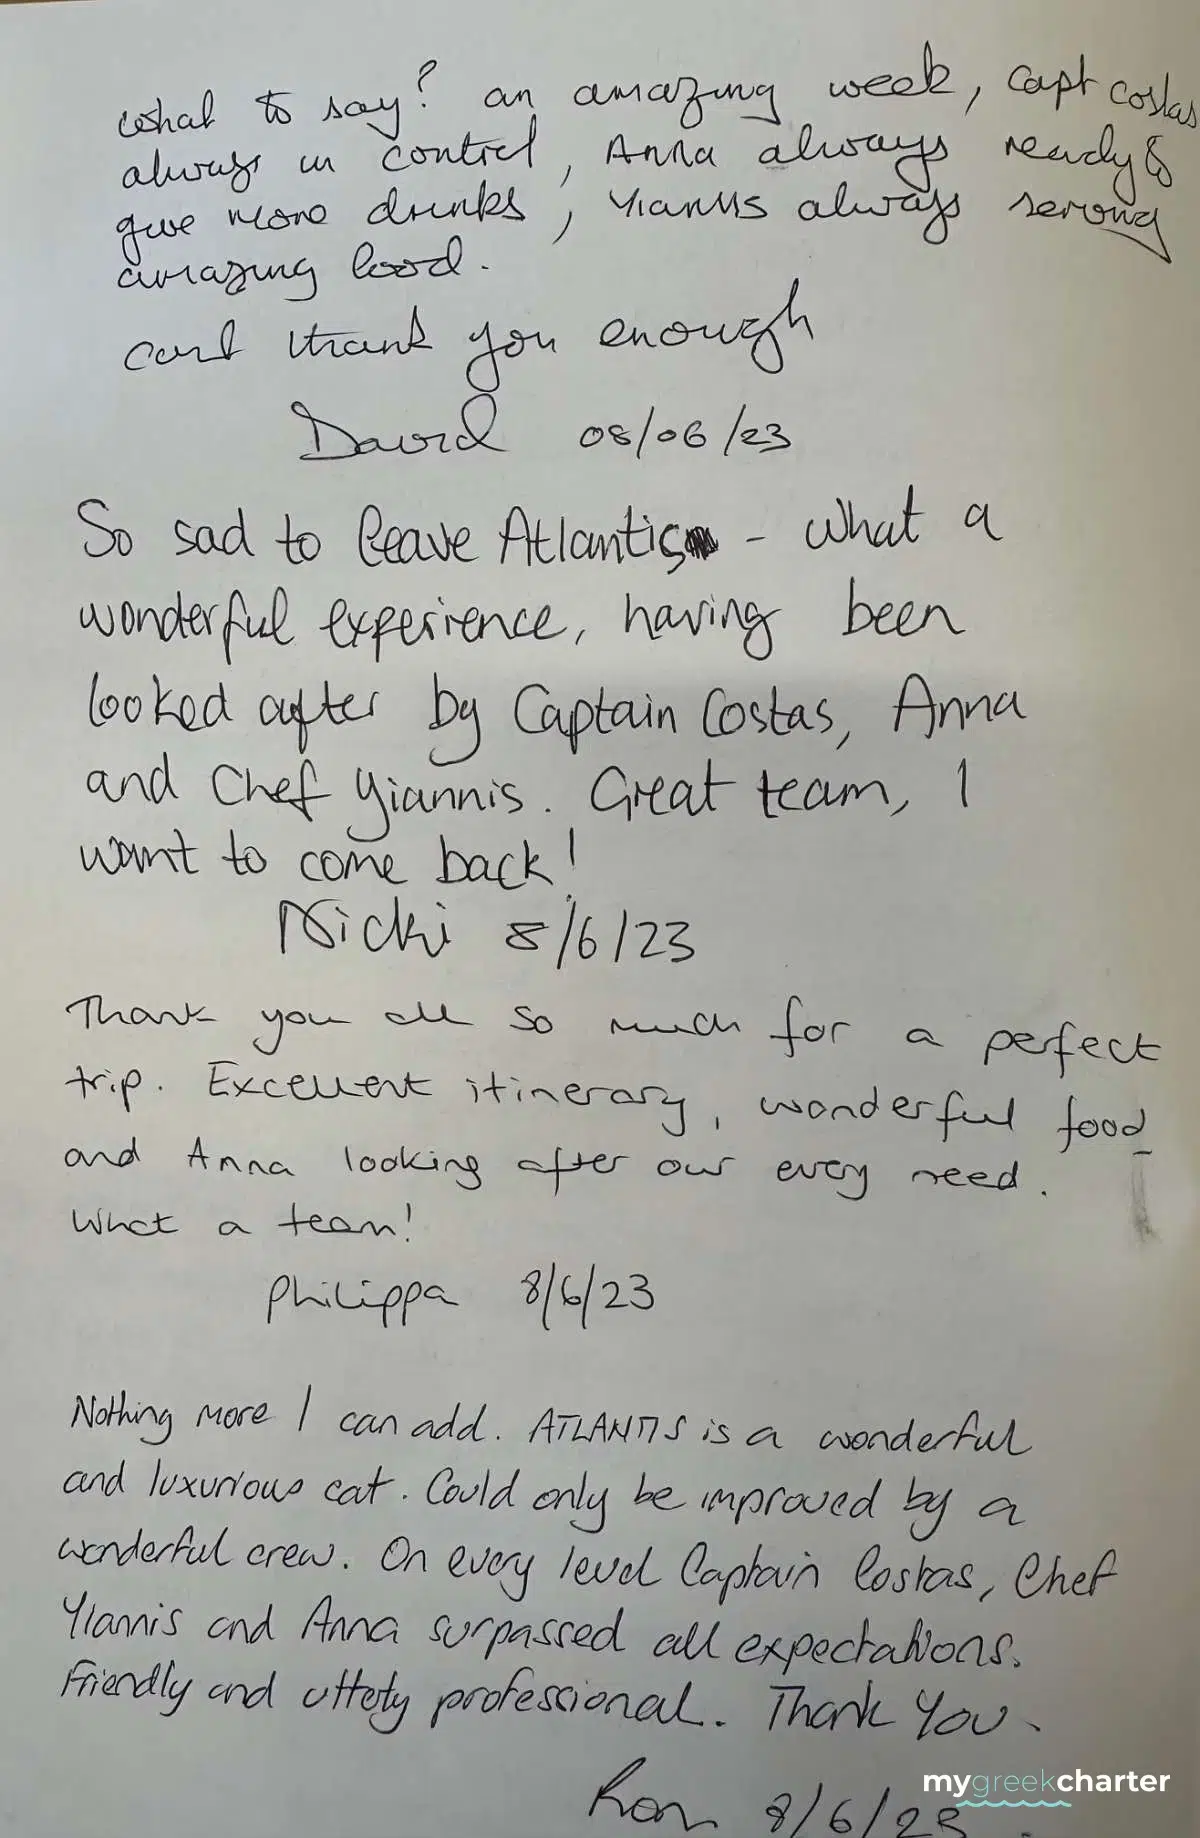 What to say? an amazing week, Capt Costas
always in control, Anna always ready to
give more drinks, Yiannis always serving
amazing food.
can't thank you enough
David 08/06/23
So sad to leave Atlantis - what a
wonderful experience, having been
looked after by Captain Costas, Anna
and Chef Yiannis. Great team, I
want to come back!
Nicki 8/6/23
Thank you all so much for a perfect
trip. Excellent itinerary, wonderful food
and Anna looking after our every need.
What a team!
Philippa 8/6/23
Nothing more I can add. ATLANTIS is a wonderful
and luxurious cat. Could only be improved by a
wonderful crew. On every level Captain Costas, Chef
Yiannis and Anna surpassed all expectations.
Friendly and utterly professional. Thank You.
Ron 8/6/23.
mygreekcharter